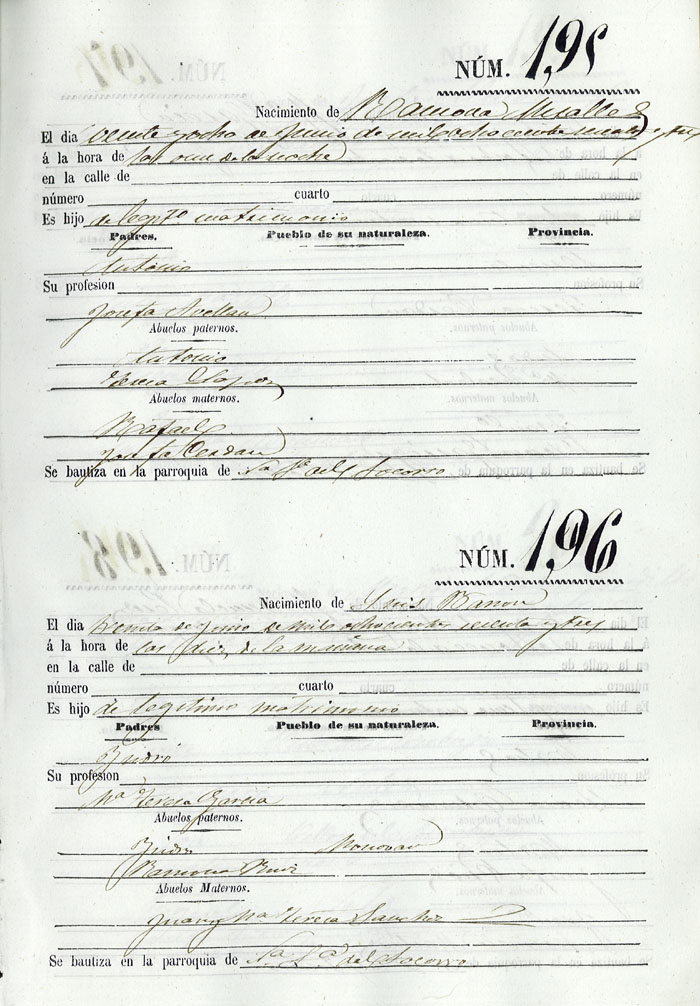 NÚM. 195
Nacimiento de Ramona Miralles
El dia veinte y ocho de Junio de mil ochocientos sesenta y tres
á la hora de las once de la noche
en la calle de
número cuarto
Es hijo de legmo matrimonio
Padres. Pueblo de su naturaleza. Provincia.
Antonio
Su profesion
Josefa Avellan
Abuelos paternos.
Antonio
Abuelos maternos.
Rafael
Josefa Cerdan
Se bautiza en la parroquia de Na Sa del Socorro
NÚM. 196
Nacimiento de Luis
El dia treinta de Junio de mil ochocientos sesenta y tres
á la hora de las diez de la mañana
en la calle de
número cuarto
Es hijo de legitimo matrimonio
Padres Pueblo de su naturaleza. Provincia.
Ysidro
Su profesion
Ma Teresa Garcia
Abuelos paternos.
Ysidro Monovar
Ramona Ruiz
Abuelos Maternos.
Juan y Ma Teresa Sanchez
Se bautiza en la parroquia de Na Sa del Socorro